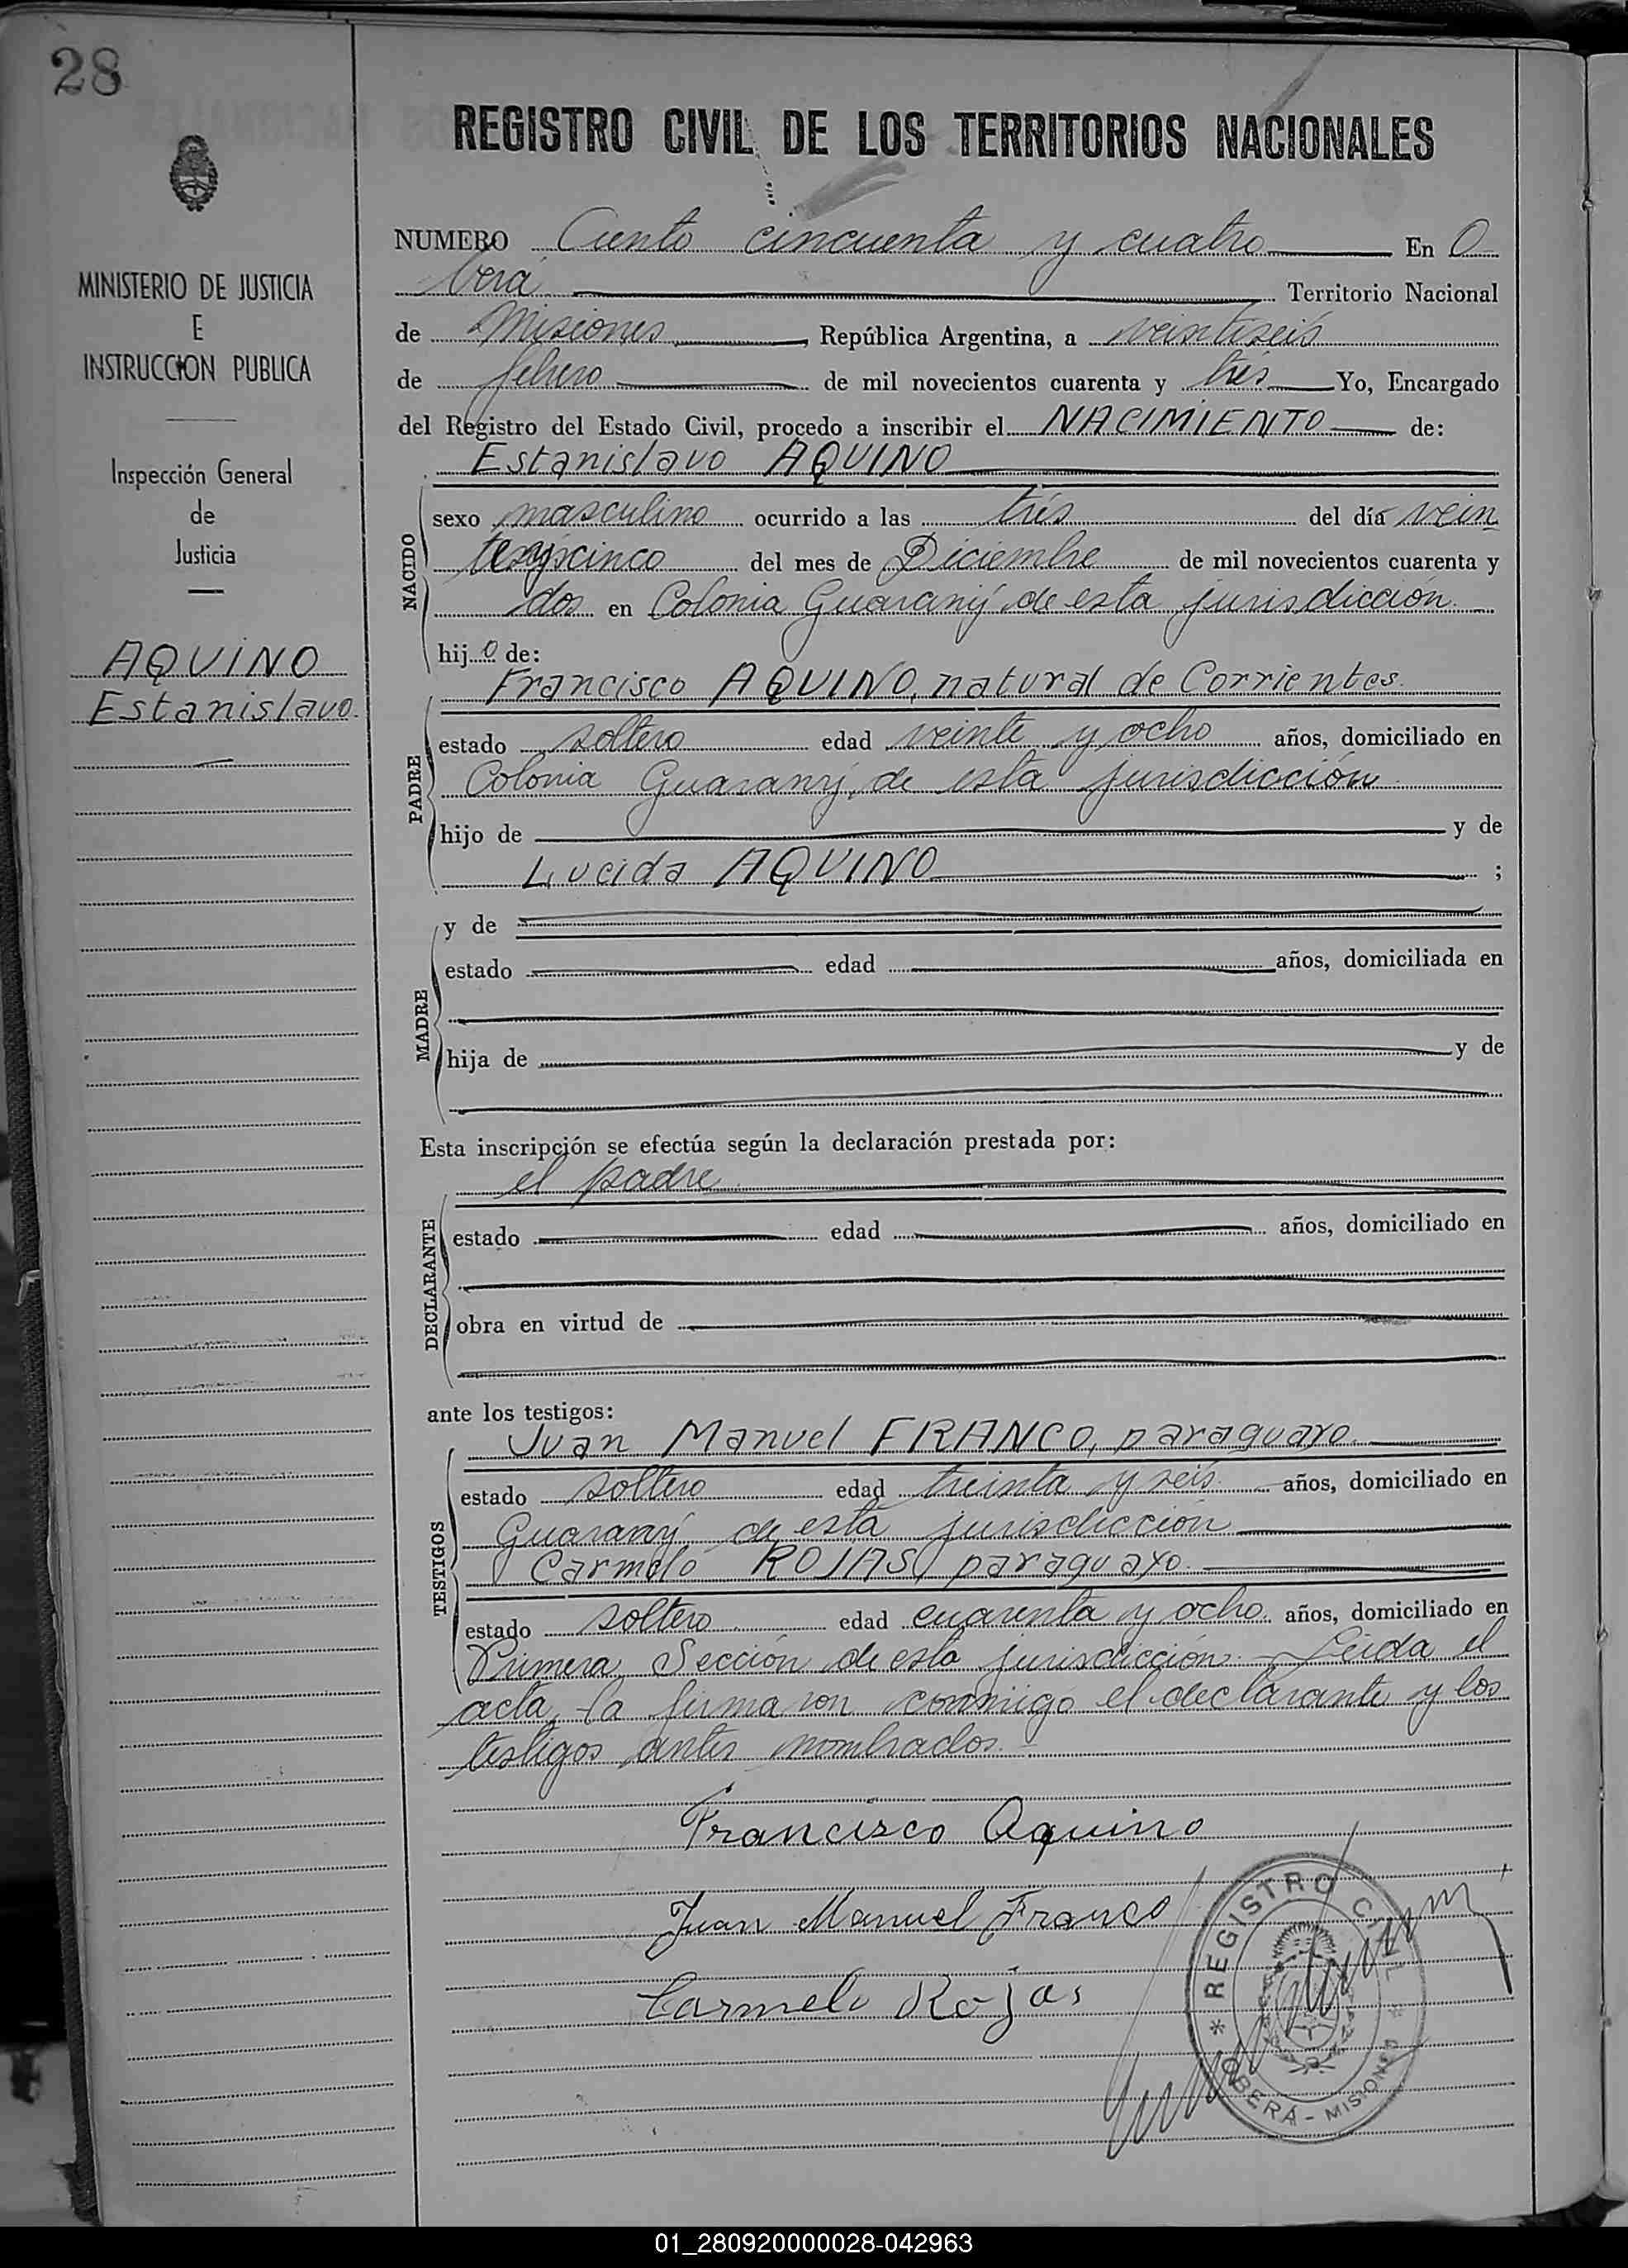 28
REGISTRO CIVIL DE LOS TERRITORIOS NACIONALES
MINISTERIO DE JUSTICIA
E
INSTRUCCION PUBLICA
Inspección General
de
Justicia
AQUINO
Estanislavo
NUMERO Ciento cincuenta y cuatro En O
berá Territorio Nacional
de Misiones, República Argentina, a veintiseis
de febrero de mil novecientos cuarenta y tres Yo, Encargado
del Registro del Estado Civil, procedo a inscribir el NACIMIENTO de:
Estanislavo AQUINO
NACIDO
sexo masculino ocurrido a las tres del día vein
te y cinco del mes de Diciembre de mil novecientos cuarenta y
dos en Colonia Guaraný de esta jurisdicción.
hijo de:
Francisco AQUINO, natural de Corrientes.
PADRE
estado soltero edad veinte y ocho años, domiciliado en
Colonia Guaraný, de esta jurisdicción
hijo de y de
Lucida AQUINO ;
MADRE
y de
estado edad años, domiciliada en
hija de y de
Esta inscripción se efectúa según la declaración prestada por:
el padre
DECLARANTE
estado edad años, domiciliado en
obra en virtud de
ante los testigos:
Juan Manuel FRANCO, paraguayo.
TESTIGOS
estado soltero edad treinta y seis años, domiciliado en
Guaraný de esta jurisdicción
Carmelo ROJAS, paraguayo.
estado soltero edad cuarenta y ocho años, domiciliado en
Primera Sección de esta jurisdicción. - Leida el
acta, la firmaron conmigo el declarante y los
testigos antes nombrados. -
Francisco Aquino
Juan Manuel Franco
Carmelo Rojas
* REGISTRO CIVIL *
OBERÁ - MISIONES
01_280920000028-042963